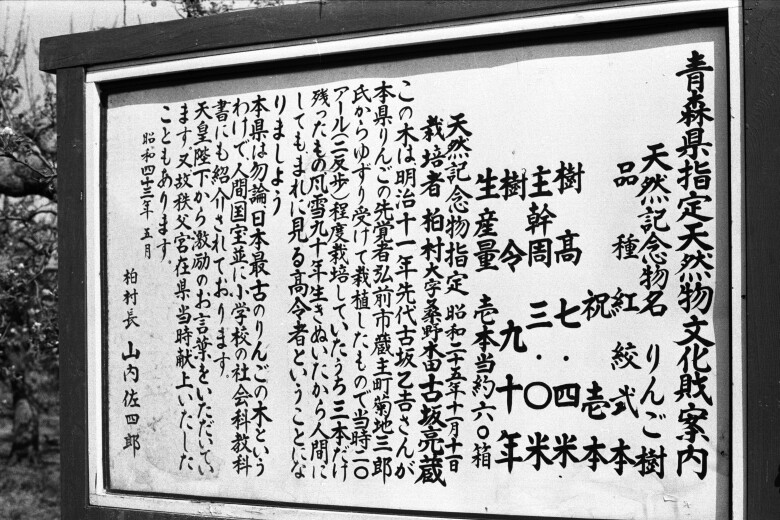 青森県指定天然物文化財案内
天然記念物名 りんご樹
品種 紅絞弍本
祝 壱本
樹高 七・四米
主幹周 三・〇米
樹令 九十年
生産量 壱本当約六〇箱
天然記念物指定 昭和二十五年十一月十一日
栽培者 柏村大字桑野木田古坂亮蔵
この木は明治十一年先代古坂乙吉さんが
本県りんごの先覚者弘前市蔵主町菊地三郎
氏からゆずり受けて栽植したもので当時二〇
アール(二反歩)程度栽培していたうち三本だけ
残ったもの凡雪九十年生きぬいたから人間に
してもまれに見る高令者ということにな
りましよう
本県は勿論日本最古のりんごの木という
わけで人間国宝並に小学校の社会科教科
書にも紹介されております。
天皇陛下から激励のお言葉をいただいてい
ます。又故秩父宮在県当時献上いたした
こともあります。
昭和四十三年 五月
柏村長 山内佐四郎